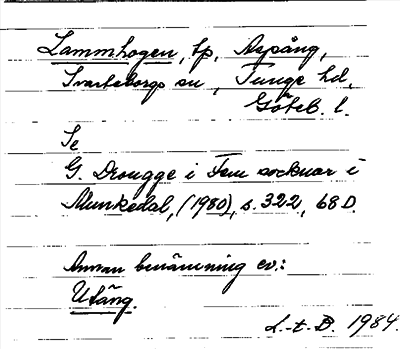 Lammhogen, tp, Aspång,
Svarteborgs sn, Tunge hd,
Göteb. l.
Se
G. Drougge i Fem socknar i
Munkedal, (1980), s. 322, 68 D.
Annan benämning ev.:
Utäng.
L.-t. B. 1984.